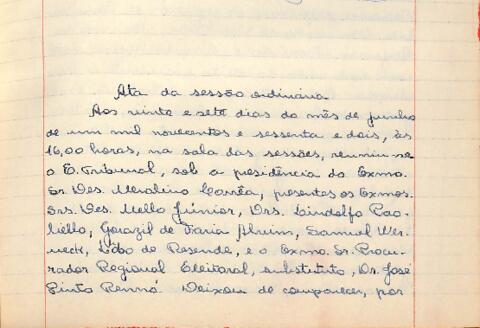 Ata da sessão ordinária
Aos vinte e sete dias do mês de junho
de um mil novecentos e sessenta e dois, às
16,00 horas, na sala das sessões, reuniu-se
o E. Tribunal, sob a presidência do Exmo.
Sr. Des. Merolino Corrêa, presentes os Exmos.
Srs. Des. Mello Júnior, Drs. Lindolfo Pao-
liello, Gorazil de Faria Alvim, Samuel Wer-
neck, Lôbo de Resende, e o Exmo. Sr. Procu-
rador Regional Eleitoral, substituto, Dr. José
Pinto Rennó. Deixou de comparecer, por